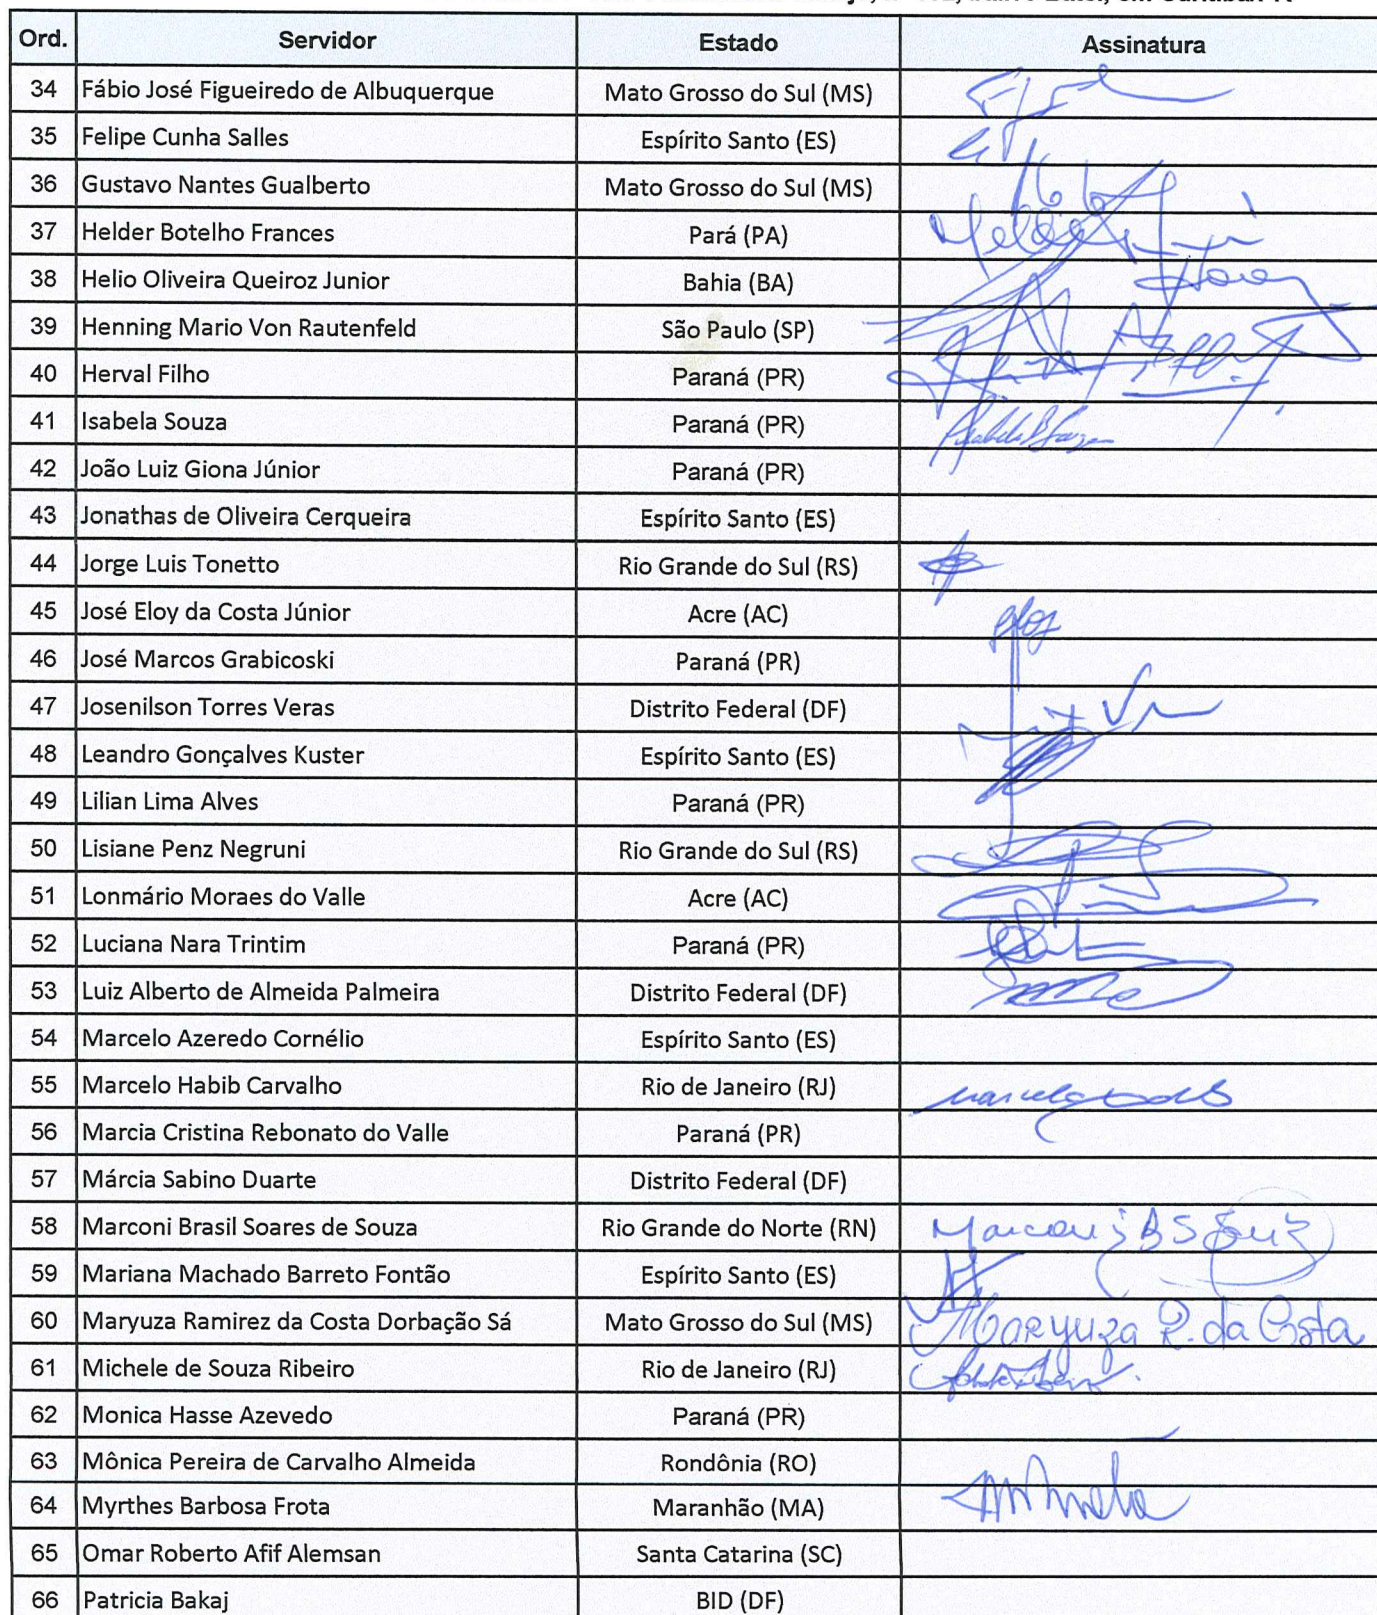 Ord. Servidor Estado Assinatura
34 Fábio José Figueiredo de Albuquerque Mato Grosso do Sul (MS)
35 Felipe Cunha Salles Espírito Santo (ES)
36 Gustavo Nantes Gualberto Mato Grosso do Sul (MS)
37 Helder Botelho Frances Pará (PA)
38 Helio Oliveira Queiroz Junior Bahia (BA)
39 Henning Mario Von Rautenfeld São Paulo (SP)
40 Herval Filho Paraná (PR)
41 Isabela Souza Paraná (PR)
42 João Luiz Giona Júnior Paraná (PR)
43 Jonathas de Oliveira Cerqueira Espírito Santo (ES)
44 Jorge Luis Tonetto Rio Grande do Sul (RS)
45 José Eloy da Costa Júnior Acre (AC)
46 José Marcos Grabicoski Paraná (PR)
47 Josenilson Torres Veras Distrito Federal (DF)
48 Leandro Gonçalves Kuster Espírito Santo (ES)
49 Lilian Lima Alves Paraná (PR)
50 Lisiane Penz Negruni Rio Grande do Sul (RS)
51 Lonmário Moraes do Valle Acre (AC)
52 Luciana Nara Trintim Paraná (PR)
53 Luiz Alberto de Almeida Palmeira Distrito Federal (DF)
54 Marcelo Azeredo Cornélio Espírito Santo (ES)
55 Marcelo Habib Carvalho Rio de Janeiro (RJ)
56 Marcia Cristina Rebonato do Valle Paraná (PR)
57 Márcia Sabino Duarte Distrito Federal (DF)
58 Marconi Brasil Soares de Souza Rio Grande do Norte (RN) Marconi B S Souz
59 Mariana Machado Barreto Fontão Espírito Santo (ES)
60 Maryuza Ramirez da Costa Dorbação Sá Mato Grosso do Sul (MS) Maryuza R. da Costa
61 Michele de Souza Ribeiro Rio de Janeiro (RJ)
62 Monica Hasse Azevedo Paraná (PR)
63 Mônica Pereira de Carvalho Almeida Rondônia (RO)
64 Myrthes Barbosa Frota Maranhão (MA)
65 Omar Roberto Afif Alemsan Santa Catarina (SC)
66 Patricia Bakaj BID (DF)